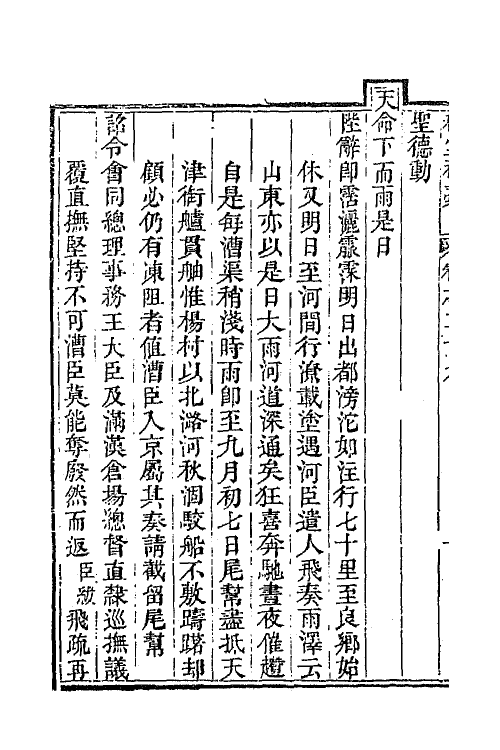 聖德動
天命下而雨是日
陛辭即霑灑霡霂明日出都滂沱如注行七十里至良鄉始
休又明日至河間行潦載塗遇河臣遣人飛奏雨澤云
山東亦以是日大雨河道深通矣狂喜奔馳晝夜催趲
自是每漕渠稍淺時雨即至九月初七日尾幫盡抵天
津銜艫貫舳惟楊村以北潞河秋涸駁船不敷躊躇却
顧必仍有凍阻者值漕臣入京屬其奏請截留尾幫
詔令會同總理事務王大臣及滿漢倉場總督直隸巡撫議
覆直撫堅持不可漕臣莫能奪廢然而返臣紱飛疏再